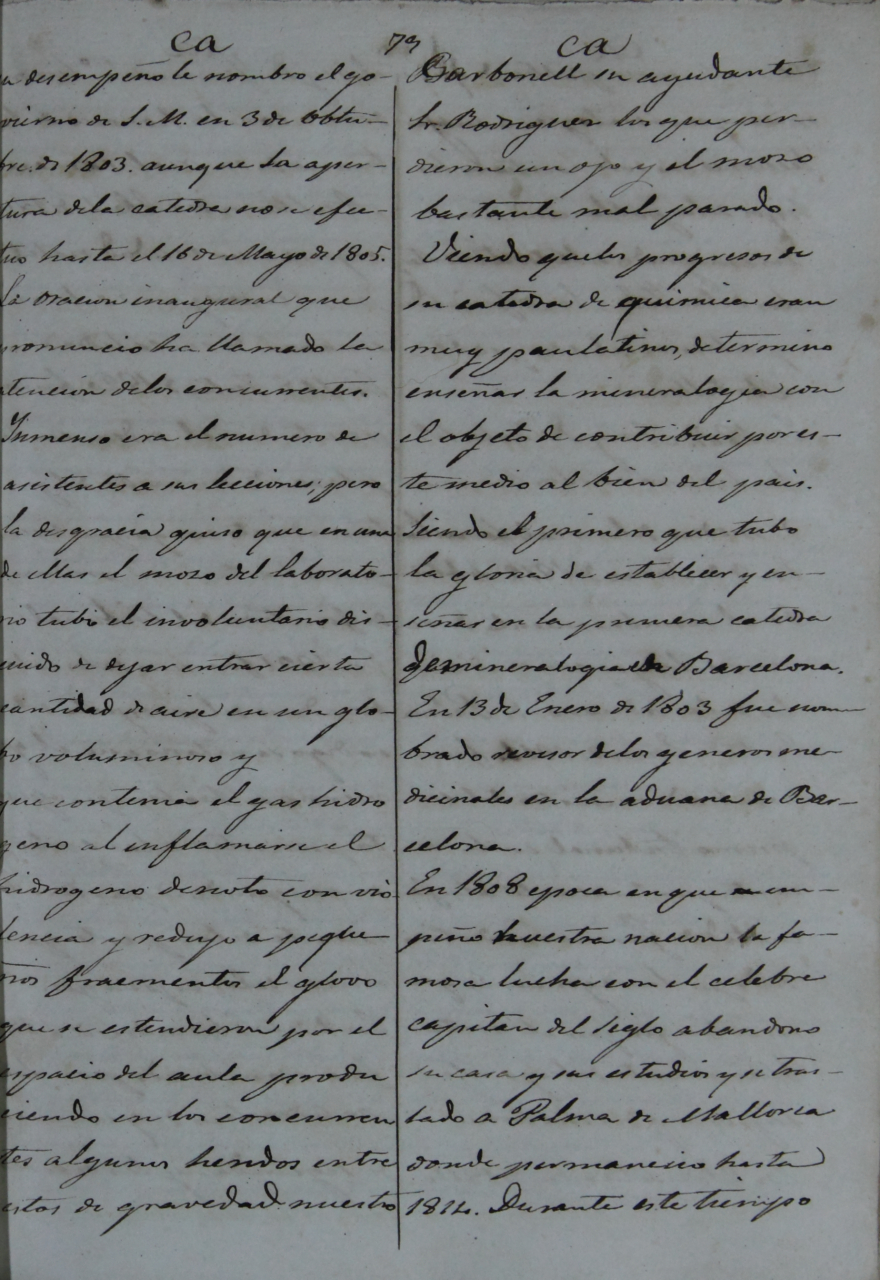 Ca
73
Ca
u desempeño le nombro el go-
vierno de S. M. en 3 de Octu-
bre. de 1803. aunque la aper-
tura dela catedra no se efec-
tuo hasta el 16 de Mayo de 1805.
La oracion inaugural que
pronuncio ha llamado la
atencion delos concurrentes.
Inmenso era el numero de
asistentes a sus lecciones; pero
la desgracia quiso que en una
de ellas el moso del laborato-
rio tubo el involuntario des-
cuido de dejar entrar cierta
cantidad de aire en un glo-
bo voluminoso y
que contenia el gas hidro
geno al inflamarse el
hidrogeno denoto con vio-
lencia y redujo a peque-
ños fracmentos el glovo
que se estendieron por el
espacio del aula produ
ciendo en los concurren
tes algunos heridos entre
estos de gravedad nuestro
Carbonell su ayudante
Sr. Rodriguez los que per-
dieron un ojo y el moso
bastante mal parado.
Viendo quelos progresos de
su catedra de quimica eran
muy paulatinos, determino
enseñar la mineralogia con
el objeto de contribuir por es-
te medio al bien del pais.
Siendo el primero que tubo
la gloria de establecer y en-
señar en la primera catedra
de mineralogia de Barcelona.
En 13 de Enero de 1803 fue nom-
brado revisor delos generos me-
dicinales en la aduana de Bar-
celona.
En 1808 epoca en que em-
peño nuestra nacion la fa-
mosa lucha con el celebre
capitan del siglo abandono
su casa y sus estudios y se tras-
lado a Palma de Mallorca
donde permanecio hasta
1814. Durante este tiempo